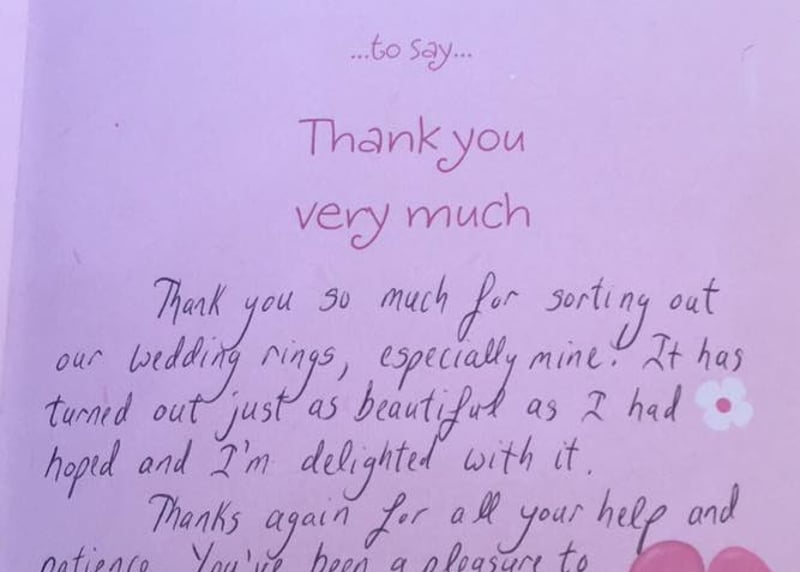 ...to say...
Thank you
very much
Thank you so much for sorting out
our wedding rings, especially mine! It has
turned out just as beautiful as I had
hoped and I'm delighted with it.
Thanks again for all your help and
patience. You've been a pleasure to